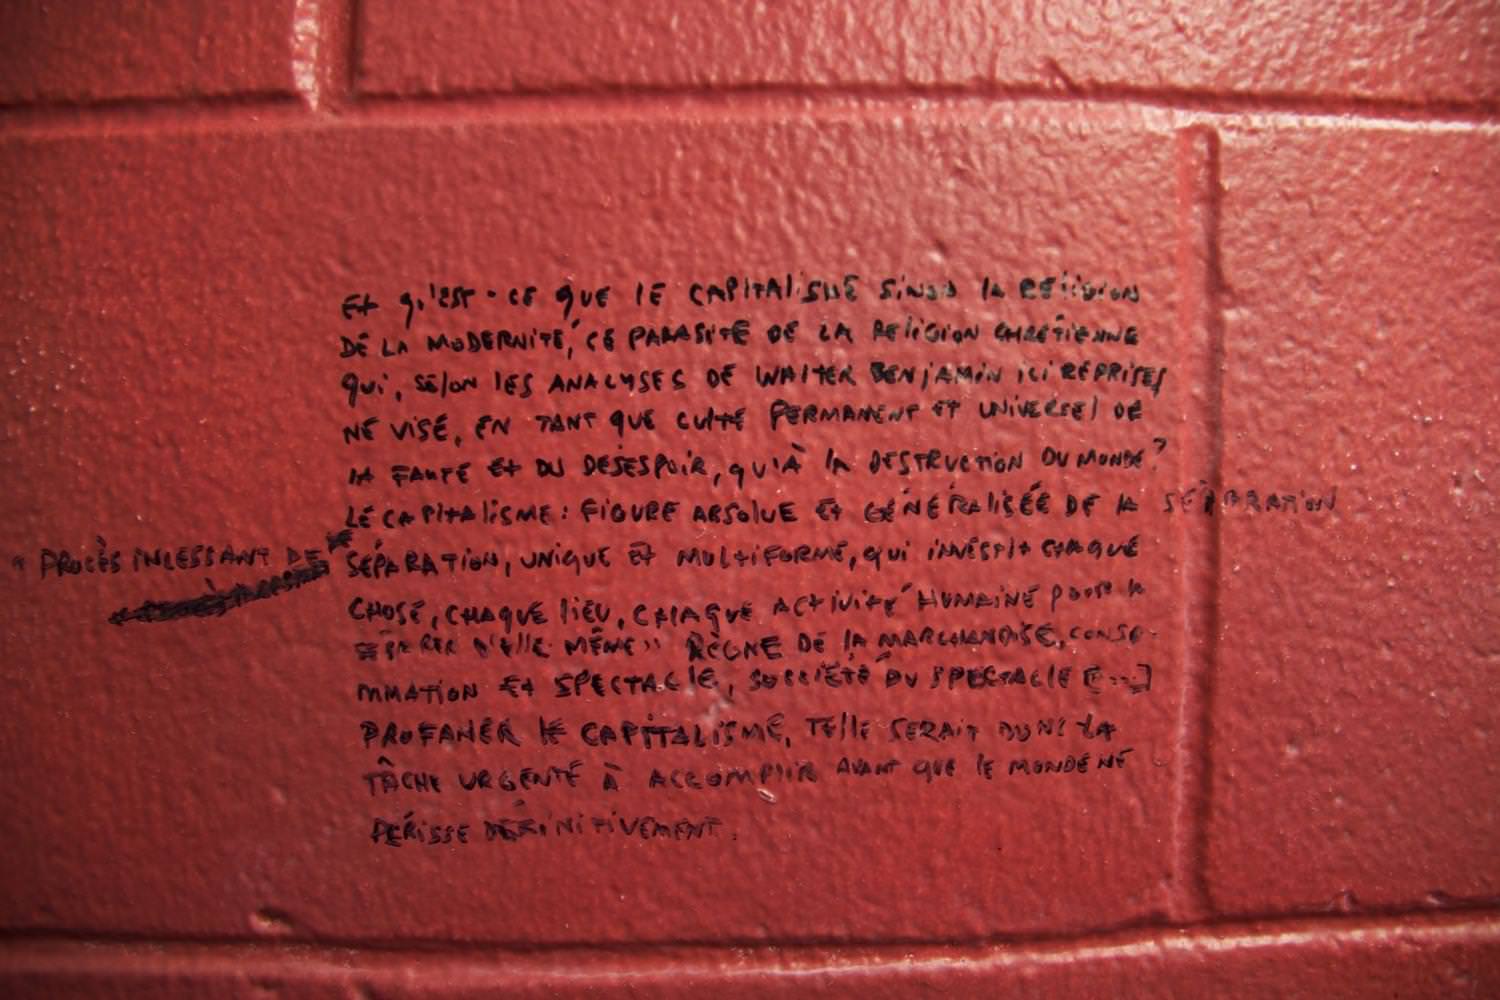 ET QU'EST-CE QUE LE CAPITALISME SINON LA RELIGION
DE LA MODERNITÉ, CE PARASITE DE LA RELIGION CHRÉTIENNE
QUI, SELON LES ANALYSES DE WALTER BENJAMIN ICI REPRISES
NE VISE, EN TANT QUE CULTE PERMANENT ET UNIVERSEL DE
LA FAUTE ET DU DESESPOIR, QU'À LA DESTRUCTION DU MONDE?
LE CAPITALISME: FIGURE ABSOLUE ET GÉNÉRALISÉE DE LA SÉPARATION
" PROCÈS INCESSANT DE SÉPARATION, UNIQUE ET MULTIFORME, QUI INVESTIT CHAQUE
CHOSE, CHAQUE LIEU, CHAQUE ACTIVITÉ HUMAINE POUR LA
SÉPARER D'ELLE MÊME" RÈGNE DE LA MARCHANDISE, CONSO-
MMATION ET SPECTACLE, SOCCIÉTÉ DU SPECTACLE [...]
PROFANER LE CAPITALISME, TELLE SERAIT DONC LA
TÂCHE URGENTE À ACCOMPLIR AVANT QUE LE MONDE NE
PÉRISSE DÉFINITIVEMENT.